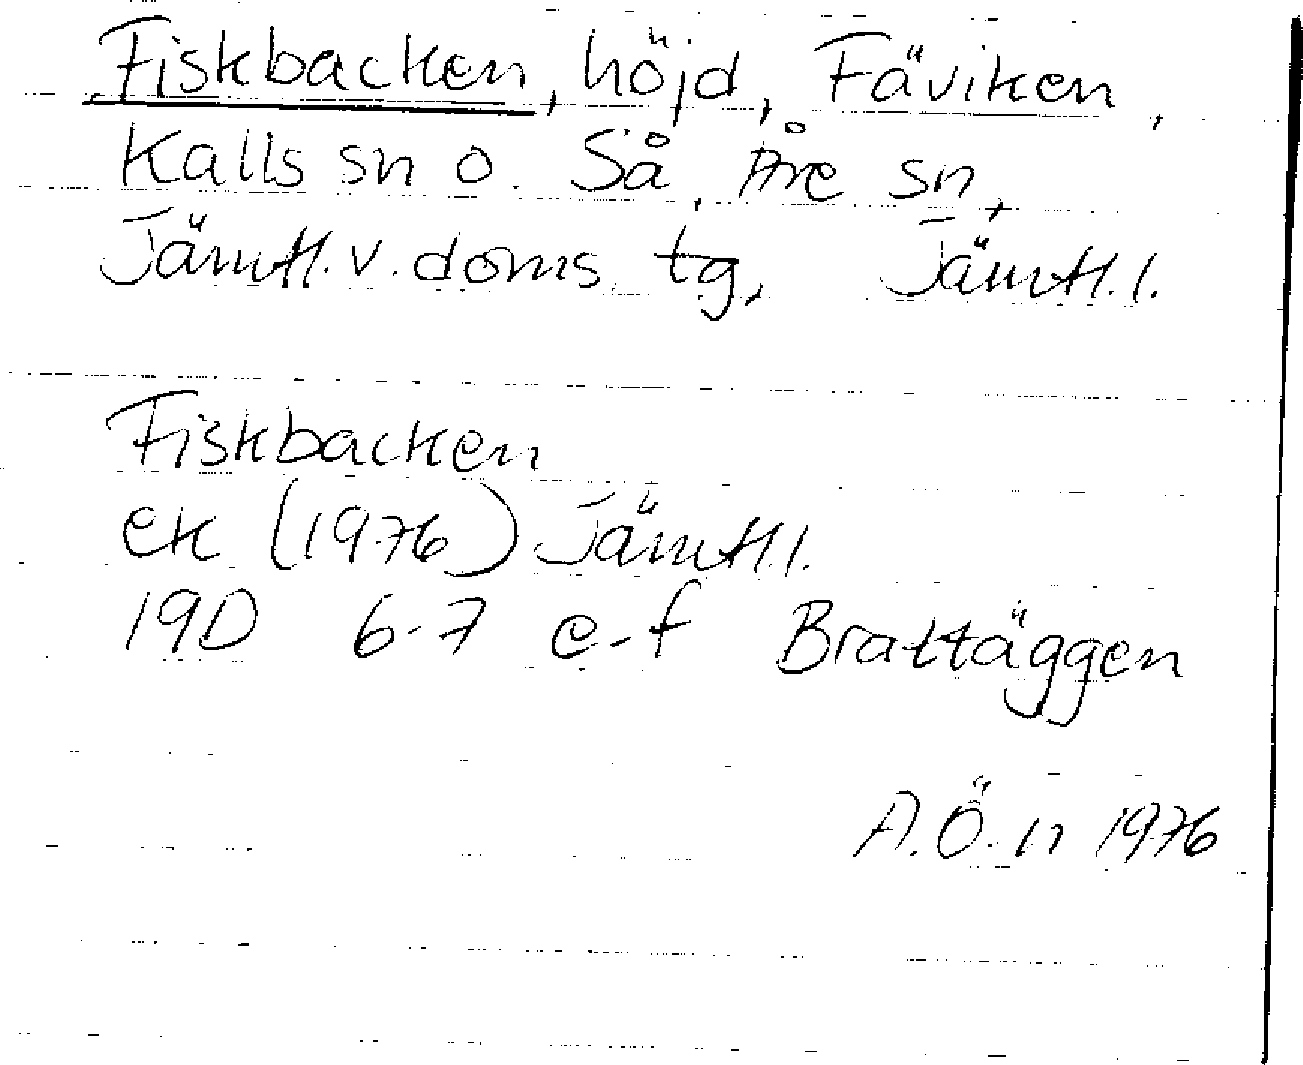 Fiskbacken, höjd, Fäviken,
Kalls sn o. Så, Åre sn,
Jämtl. v. doms. tg, Jämtl. l.
Fiskbacken
ek (1976) Jämtl. l.
19D 6-7 e-f Brattäggen
A.Ö-n 1976